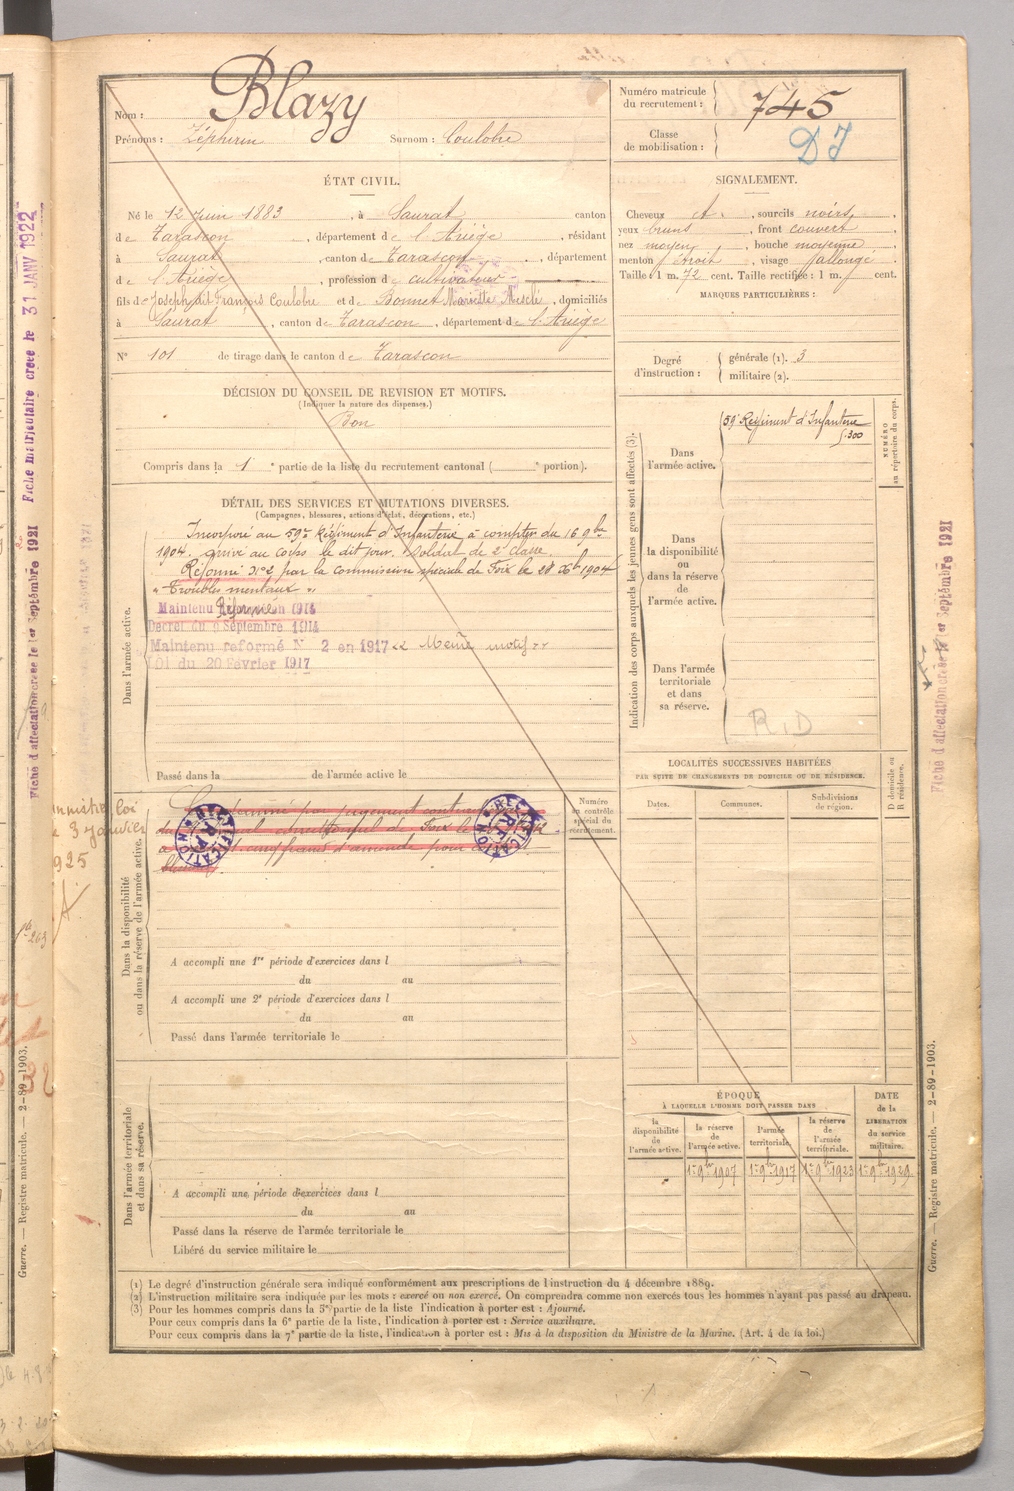 Nom : Blazy
Prénoms : Zéphirin Surnom : Coulobre
Numéro matricule
du recrutement : 745
Classe
de mobilisation : DJ
ÉTAT CIVIL.
Né le 12 Juin 1883, à Saurat canton
de Tarascon, département de l'Ariège, résidant
à Saurat, canton de Tarascon, département
de l'Ariège, profession de cultivateur
fils de Joseph dit François Coulobre et de Bonnet Mariette, domiciliés
à Saurat, canton de Tarascon, département de l'Ariège
N° 101 de tirage dans le canton de Tarascon
SIGNALEMENT.
Cheveux ct., sourcils noirs,
yeux bruns, front couvert
nez moyen, bouche moyenne
menton droit, visage allongé
Taille 1 m. 72 cent. Taille rectifiée : 1 m. cent.
MARQUES PARTICULIÈRES :
Degré
d'instruction :
générale (1). 3
militaire (2).
DÉCISION DU CONSEIL DE REVISION ET MOTIFS.
(Indiquer la nature des dispenses.)
Bon
Compris dans la 1e partie de la liste du recrutement cantonal ( e portion).
DÉTAIL DES SERVICES ET MUTATIONS DIVERSES.
(Campagnes, blessures, actions d'éclat, décorations, etc.)
Dans l'armée active.
Incorporé au 59e Régiment d'Infanterie à compter du 16 9bre
1904. Arrivé au Corps le dit jour. Soldat de 2e classe.
Réformé N°2 par la commission spéciale de Foix le 28 Xbre 1904
"Troubles mentaux".
Maintenu Réformé en 1914
Décret du 9 Septembre 1914
Maintenu reformé N° 2 en 1917 "Même motif"
LOI du 20 Février 1917
Passé dans la de l'armée active le
Indication des corps auxquels les jeunes gens sont affectés (3).
NUMÉRO
au répertoire du corps.
Dans
l'armée active.
59e Régiment d'Infanterie
5.300
Dans
la disponibilité
ou
dans la réserve
de
l'armée active.
Dans l'armée
territoriale
et dans
sa réserve.
R.D
Dans la disponibilité
ou dans la réserve de l'armée active.
RECTIFICATION
RF
RECTIFICATION
RF
Numéro
au contrôle
spécial du
recrutement.
A accompli une 1re période d'exercices dans l
du au
A accompli une 2e période d'exercices dans l
du au
Passé dans l'armée territoriale le
LOCALITÉS SUCCESSIVES HABITÉES
PAR SUITE DE CHANGEMENTS DE DOMICILE OU DE RÉSIDENCE.
Dates.
Communes.
Subdivisions
de région.
D domicile ou
R résidence.
Dans l'armée territoriale
et dans sa réserve.
A accompli une période d'exercices dans l
du au
Passé dans la réserve de l'armée territoriale le
Libéré du service militaire le
ÉPOQUE
À LAQUELLE L'HOMME DOIT PASSER DANS
la
disponibilité
de
l'armée active.
la réserve
de
l'armée active.
l'armée
territoriale.
la réserve
de
l'armée
territoriale.
DATE
de la
LIBÉRATION
du service
militaire.
1er 9bre 1907 1er 9bre 1917 1er 9bre 1923 1er 9bre 1929
(1) Le degré d'instruction générale sera indiqué conformément aux prescriptions de l'instruction du 4 décembre 1889.
(2) L'instruction militaire sera indiquée par les mots : exercé ou non exercé. On comprendra comme non exercés tous les hommes n'ayant pas passé au drapeau.
(3) Pour les hommes compris dans la 5e partie de la liste l'indication à porter est : Ajourné.
Pour ceux compris dans la 6e partie de la liste, l'indication à porter est : Service auxiliaire.
Pour ceux compris dans la 7e partie de la liste, l'indication à porter est : Mis à la disposition du Ministre de la Marine. (Art. 4 de la loi.)
Guerre. — Registre matricule. — 2-89-1903.
Guerre. — Registre matricule. — 2-89-1903.
Fiche d'affectation créée le 1er Septembre 1921
Fiche matriculaire créée le 31 JANV 1922
Fiche d'affectation créée le 1er Septembre 1921
loi
3 Janvier
1925